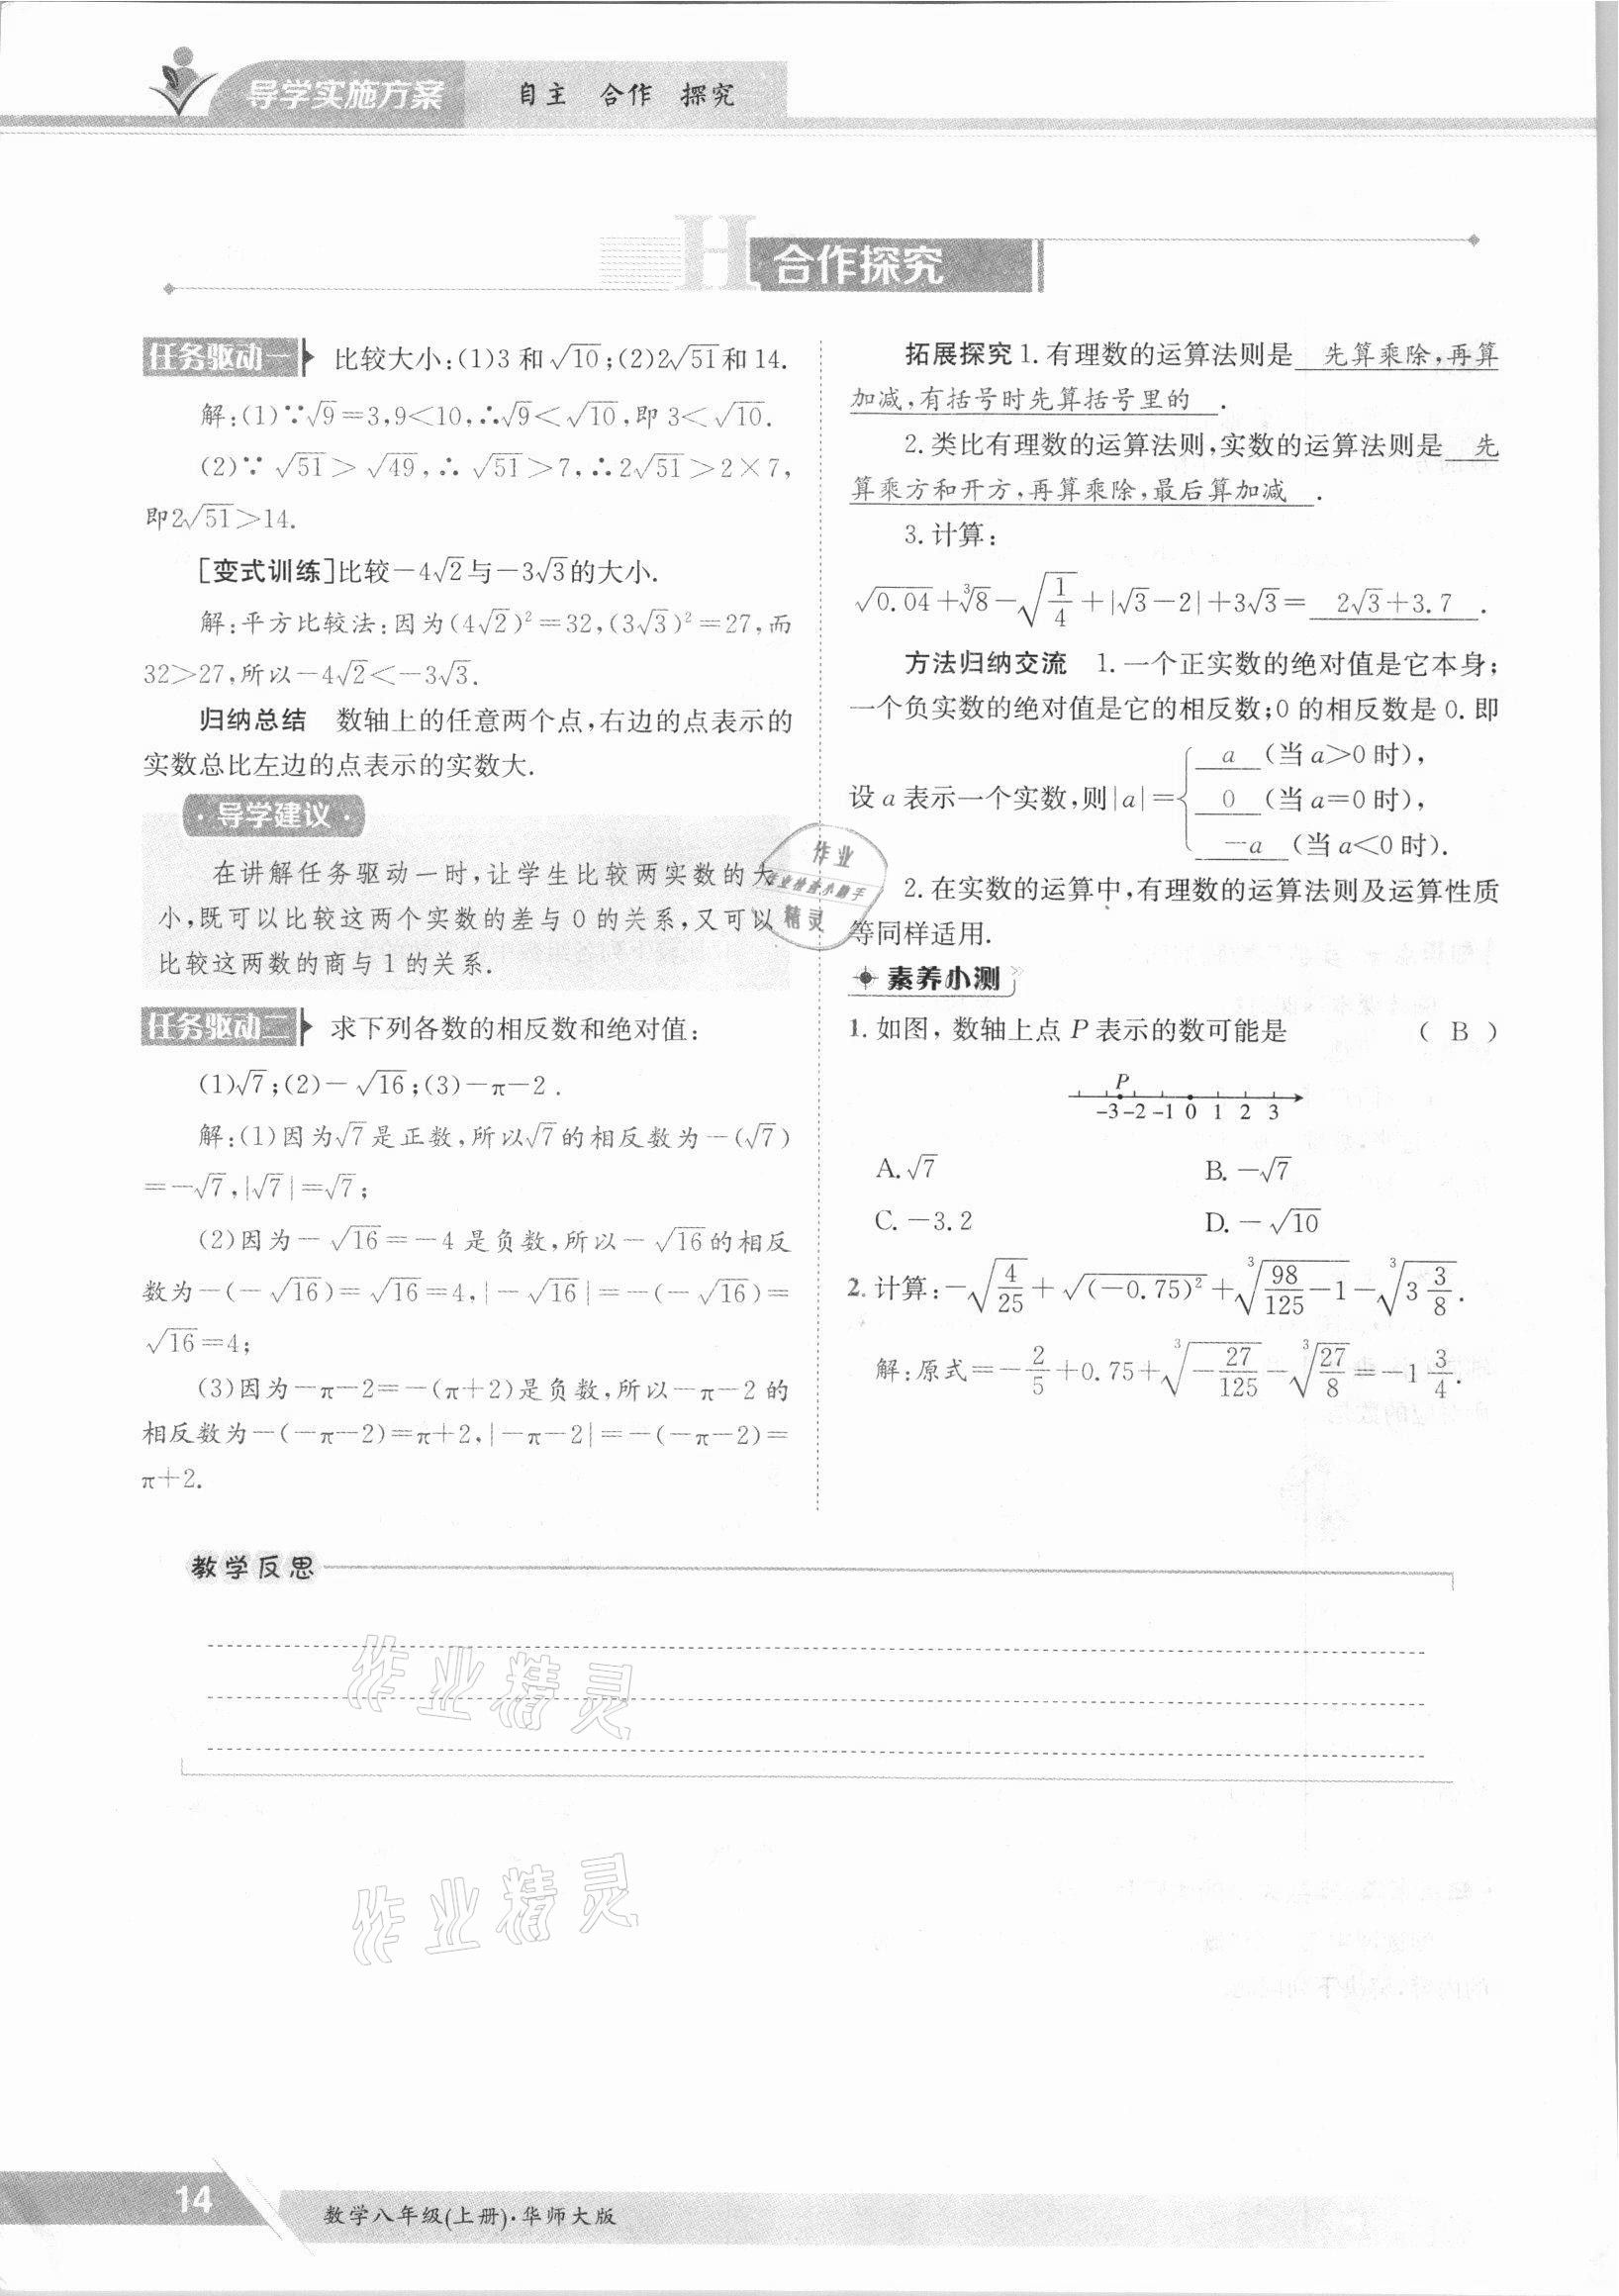 导学实施方案 自主 合作 探究
H 合作探究
任务驱动一 比较大小:(1)3 和√10;(2)2√51和14.
解:(1)∵√9=3,9<10,∴√9<√10,即 3<√10.
(2)∵√51>√49,∴√51>7,∴2√51>2×7,
即2√51>14.
[变式训练]比较-4√2与-3√3的大小.
解:平方比较法:因为(4√2)²=32,(3√3)²=27,而
32>27,所以-4√2<-3√3.
归纳总结 数轴上的任意两个点,右边的点表示的
实数总比左边的点表示的实数大.
·导学建议·
在讲解任务驱动一时,让学生比较两实数的大
小,既可以比较这两个实数的差与0的关系,又可以
比较这两数的商与1的关系.
任务驱动二 求下列各数的相反数和绝对值:
(1)√7;(2)-√16;(3)-π-2.
解:(1)因为√7是正数,所以√7的相反数为-(√7)
=-√7,|√7|=√7;
(2)因为-√16=-4是负数,所以-√16的相反
数为-(-√16)=√16=4,|-√16|=-(-√16)=
√16=4;
(3)因为-π-2=-(π+2)是负数,所以-π-2的
相反数为-(-π-2)=π+2,|-π-2|=-(-π-2)=
π+2.
拓展探究 1. 有理数的运算法则是 先算乘除,再算
加减,有括号时先算括号里的 .
2. 类比有理数的运算法则,实数的运算法则是 先
算乘方和开方,再算乘除,最后算加减 .
3. 计算:
√0.04+∛8-√(1/4)+|√3-2|+3√3= 2√3+3.7 .
方法归纳交流 1. 一个正实数的绝对值是它本身;
一个负实数的绝对值是它的相反数;0的相反数是0. 即
a (当a>0时),
设a表示一个实数,则|a|={ 0 (当a=0时),
-a (当a<0时).
2. 在实数的运算中,有理数的运算法则及运算性质
等同样适用.
素养小测
1. 如图,数轴上点P表示的数可能是 ( B )
P
-3 -2 -1 0 1 2 3
A. √7 B. -√7
C. -3.2 D. -√10
2. 计算:-√(4/25)+√(-0.75)²+∛(98/125-1)-∛(3 3/8).
解:原式=-2/5+0.75+∛(-27/125)-∛(27/8)=-1 3/4.
教学反思
作业精灵
作业精灵
作业
作业检查小助手
精灵
14 数学八年级(上册)·华师大版